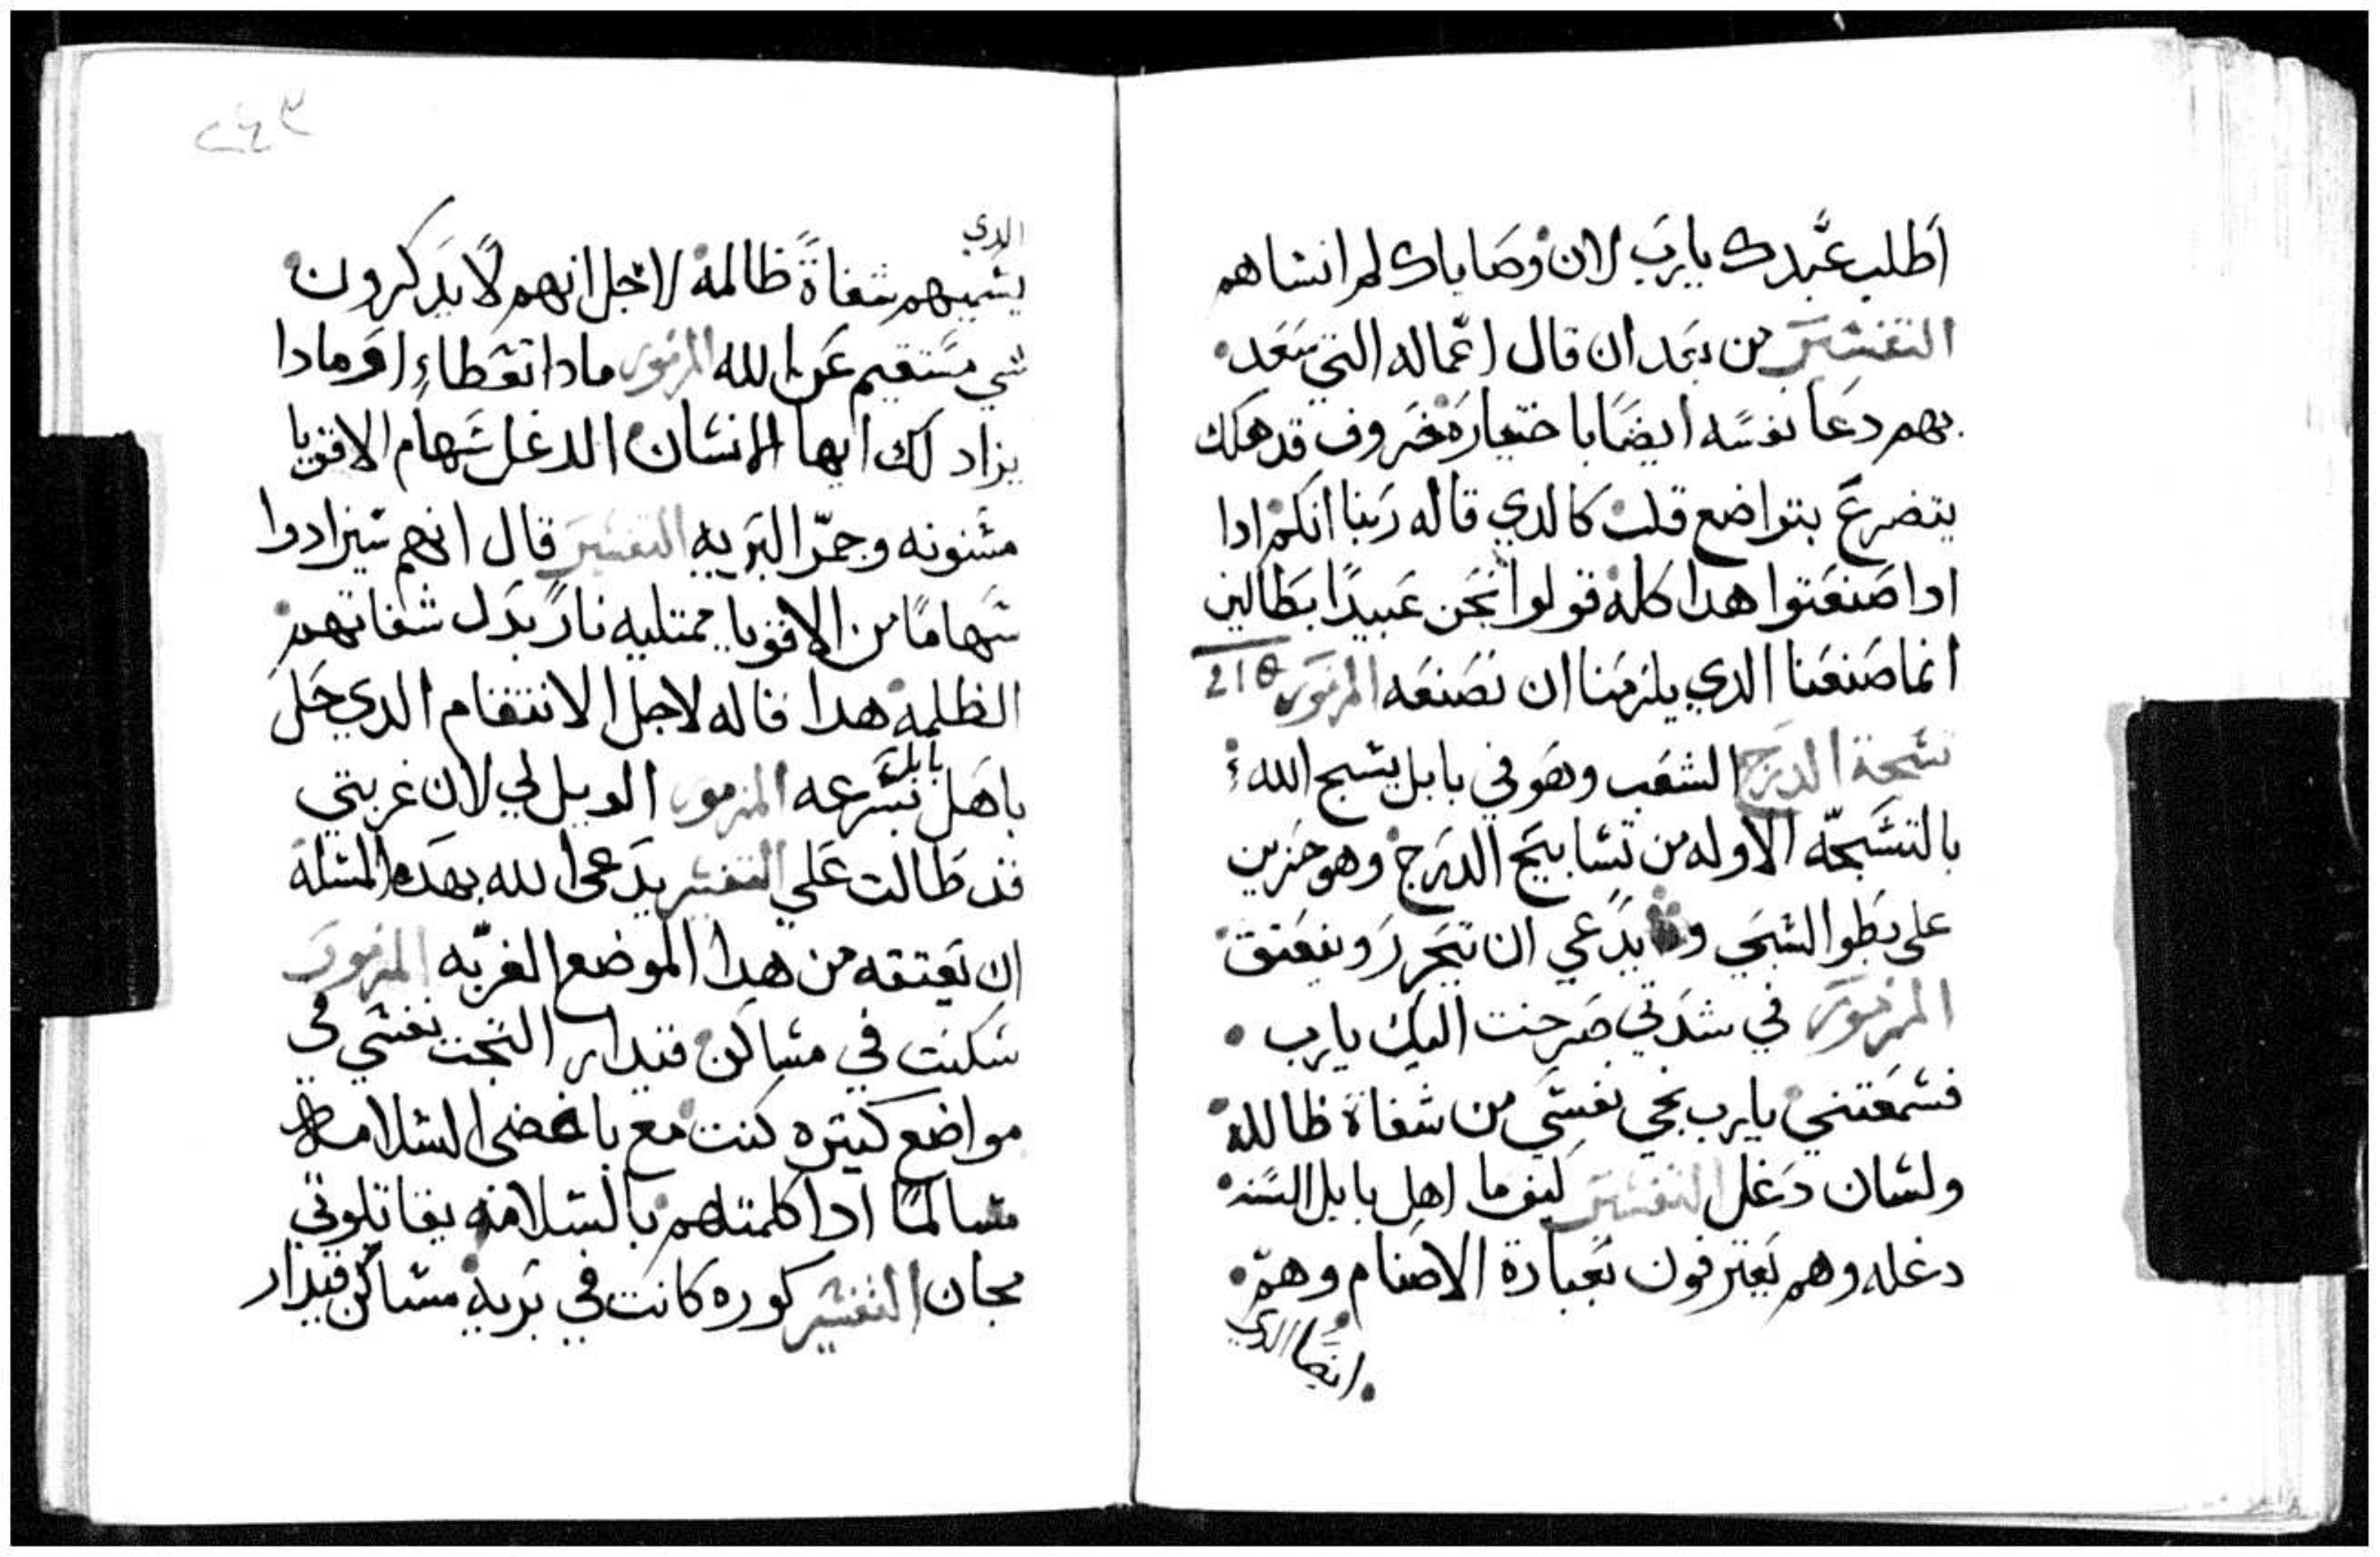 اطلب عبدك يارب لان وصاياك لم انساهم
التفسير من بعد ان قال اعماله التي سعد
بهم دعا نفسه ايضا باختياره خروف قد هلك
يتضرع بتواضع قلت كالدي قاله ربنا انكم ادا
ادا صنعتوا هدا كله قولوا نحن عبيدا بطالين
انما صنعنا الدي يلزمنا ان نصنعه المزمور
تسبحة الدرج الشعب وهو في بابل يسبح الله
بالتسبحه الاوله من تسابيح الدرج وهو حزين
على بطو السبي يدعي ان يتحرر ويتعتق
المزمور في شدتي صرخت اليك يارب
فسمعتني يارب نجي نفسي من شفاة ظالمه
ولسان دغل التفسير كيف ما اهل بابل السنه
دغله وهم يعترفون بعبادة الاصنام وهم
ايضا الدي
الدي
يسميهم شفاة ظالمه لاجل انهم لا يدكرون
شي مستقيم عن الله المزمور مادا تعطاء او مادا
يزاد لك ايها الانسان الدغل سهام الاقويا
مسنونه وجمر البريه التفسير قال انهم سيزادوا
سهاما من الاقويا ممتليه نار بدل شفاتهم
الظلمه هدا قاله لاجل الانتقام الدي حل
باهل بابل بسرعه المزمور الويل لي لان غربتي
قد طالت علي التفسير يدعى الله بهده المسله
ان يعتقه من هدا الموضع الغربه المزمور
سكنت في مساكن قيدار التجت نفسي في
مواضع كتيره كنت مع باغضي السلامه
مسالما ادا كلمتهم بالسلامه يقاتلوني
مجان التفسير كوره كانت في بريه مساكن قيدار